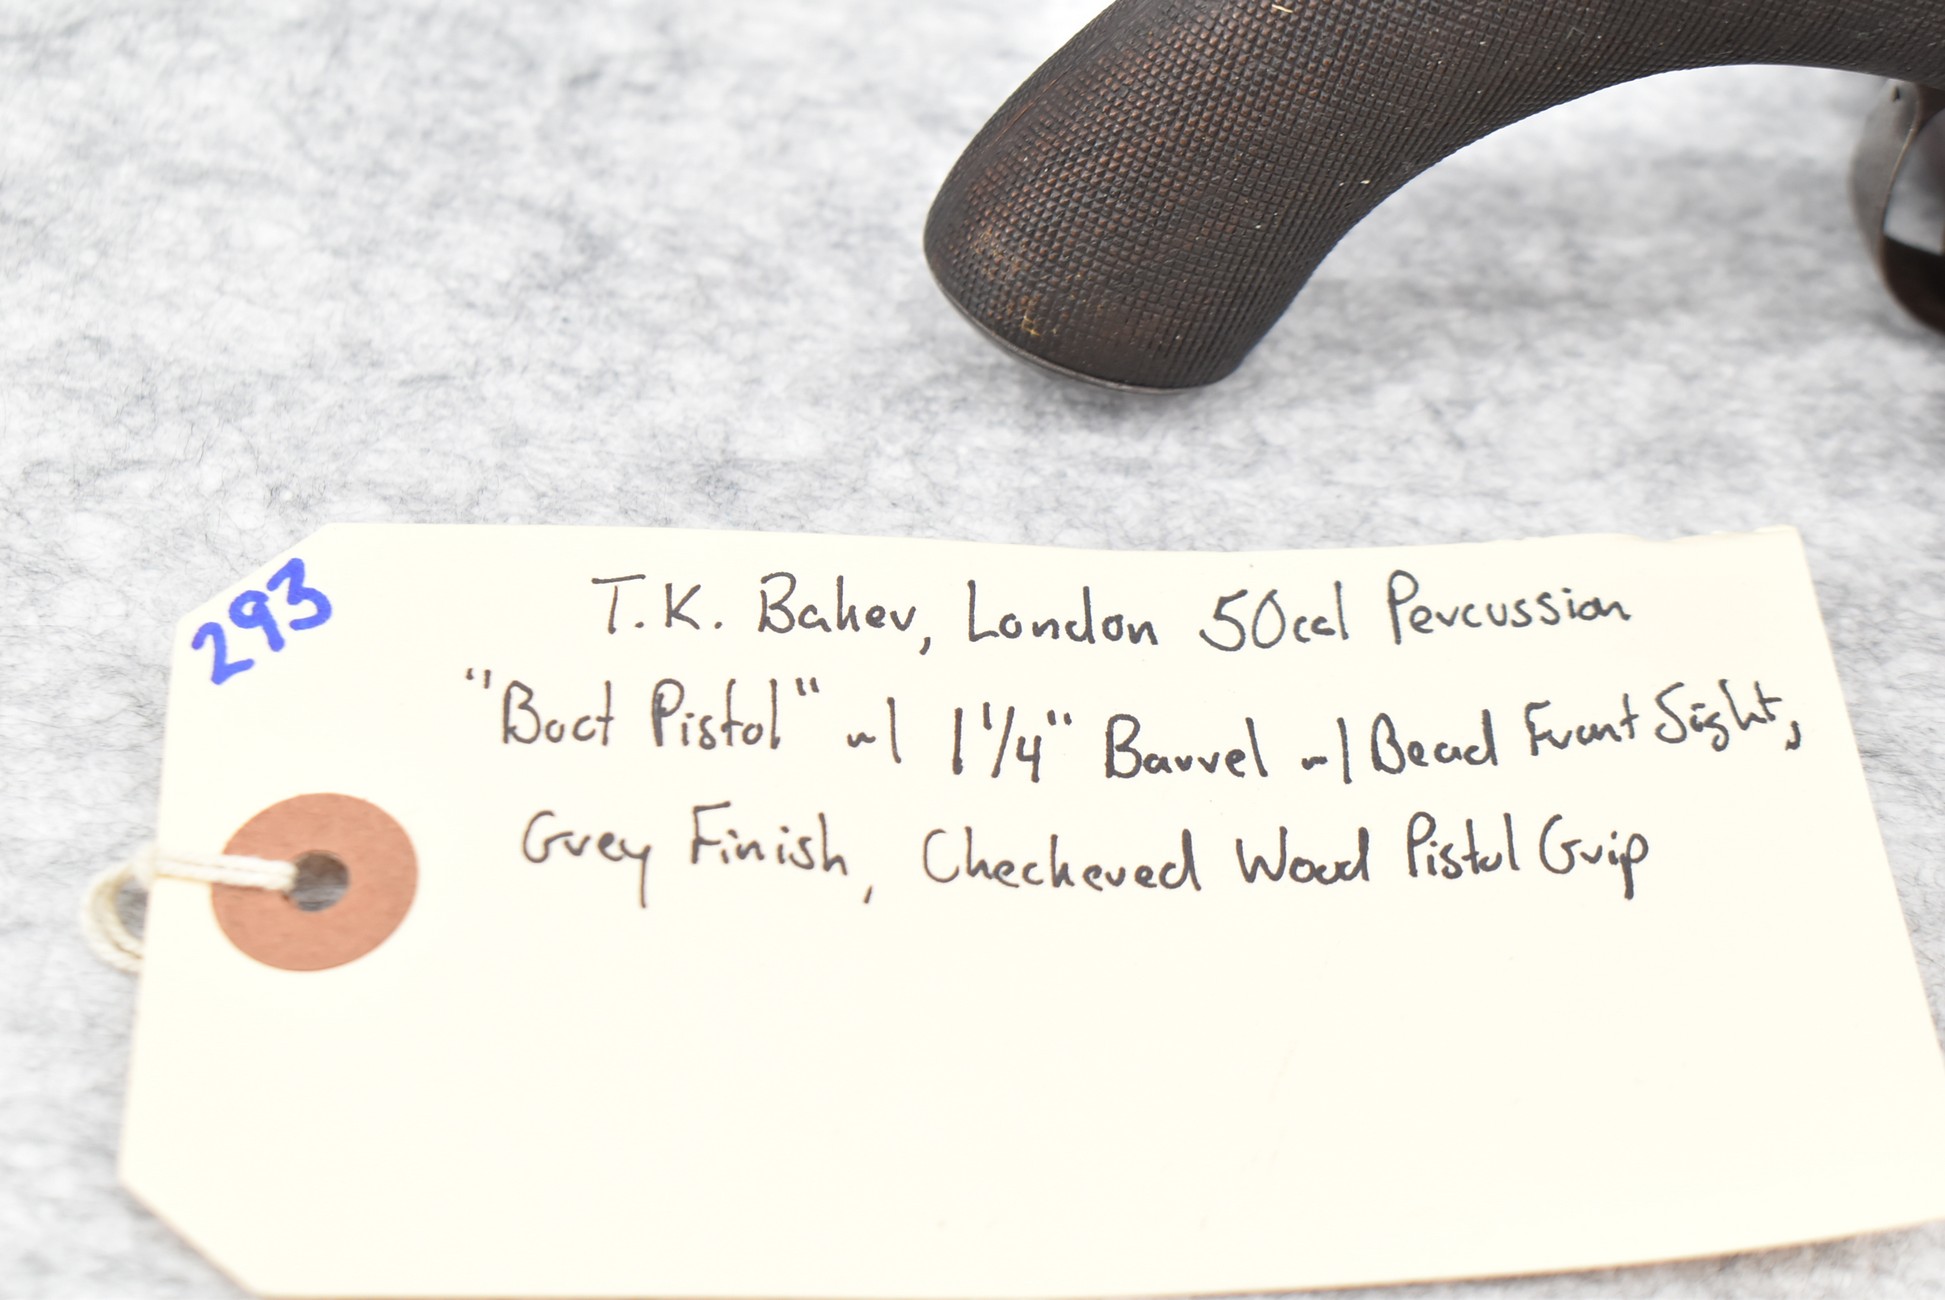 293
T.K. Baker, London 50cal Percussion
"Boot Pistol" w/ 1 1/4" Barrel w/ Bead Front Sight,
Grey Finish, Checkered Wood Pistol Grip